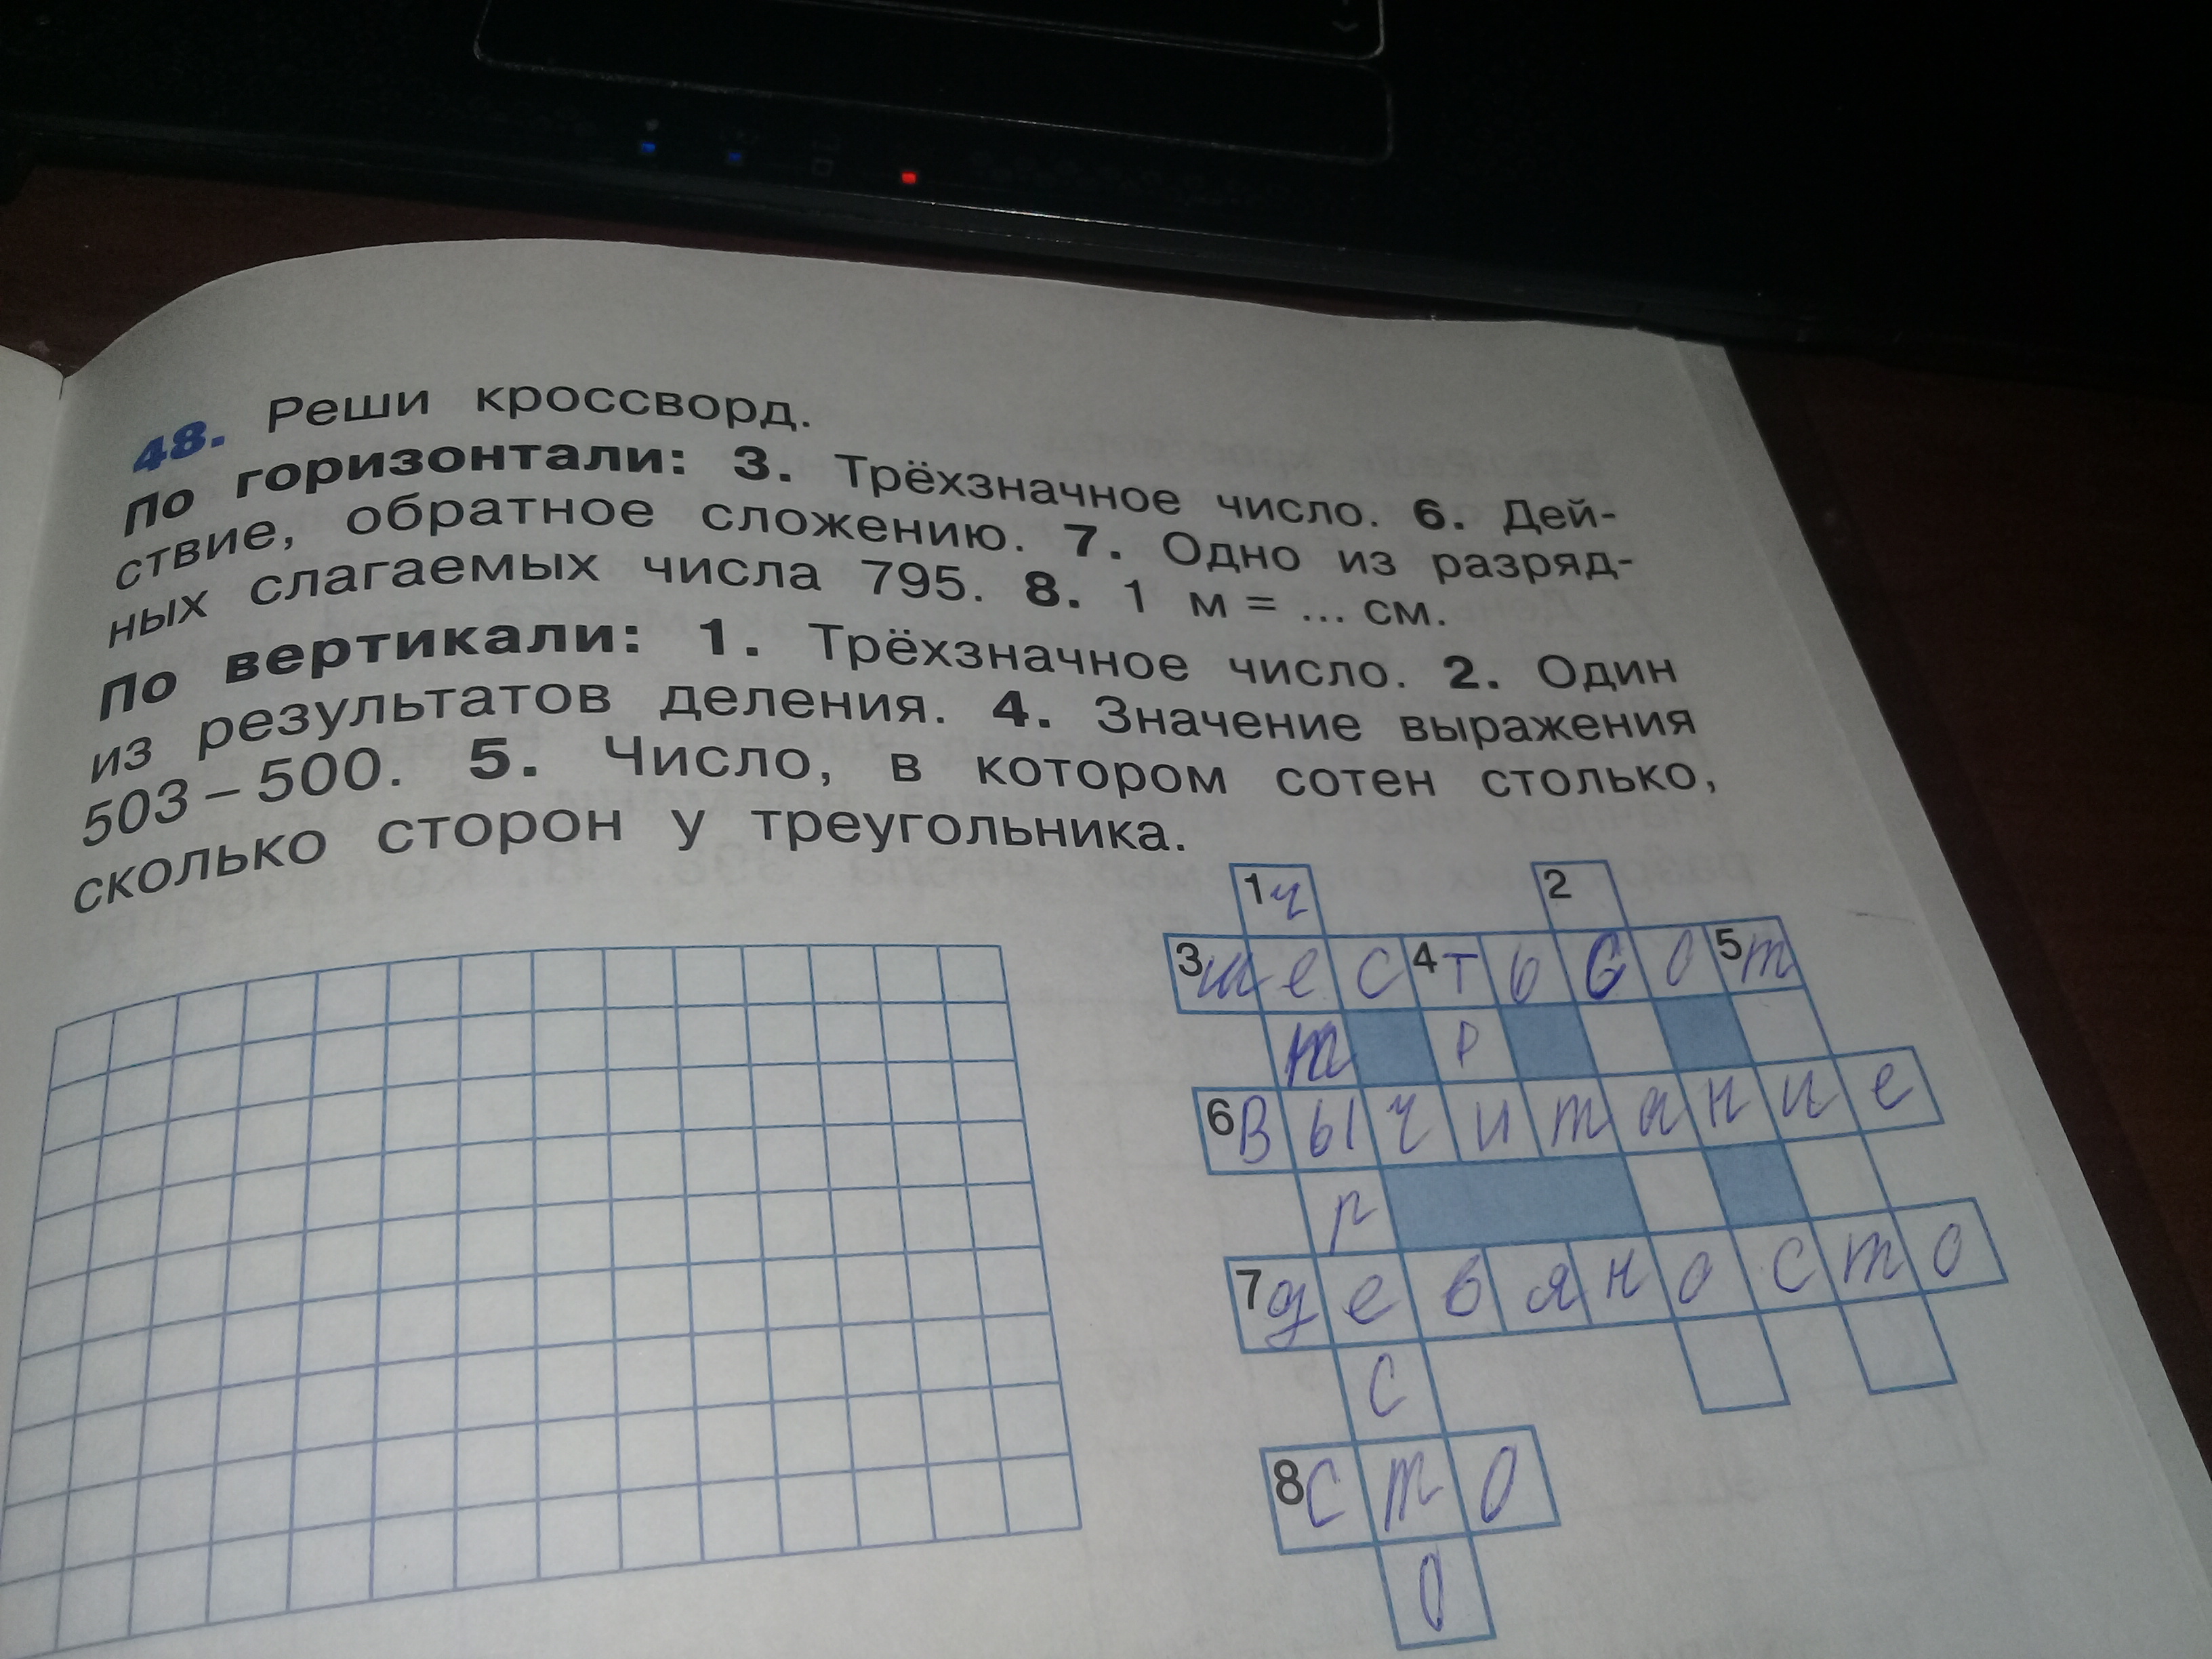 48. Реши кроссворд.
По горизонтали: 3. Трёхзначное число. 6. Дей-
ствие, обратное сложению. 7. Одно из разряд-
ных слагаемых числа 795. 8. 1 м = ... см.
По вертикали: 1. Трёхзначное число. 2. Один
из результатов деления. 4. Значение выражения
503 – 500. 5. Число, в котором сотен столько,
сколько сторон у треугольника.
1 ч 2
3 ш е с 4 т ь с о 5 т
т р
6 в ы ч и т а н и е
р
7 д е в я н о с т о
с
8 с т о
о